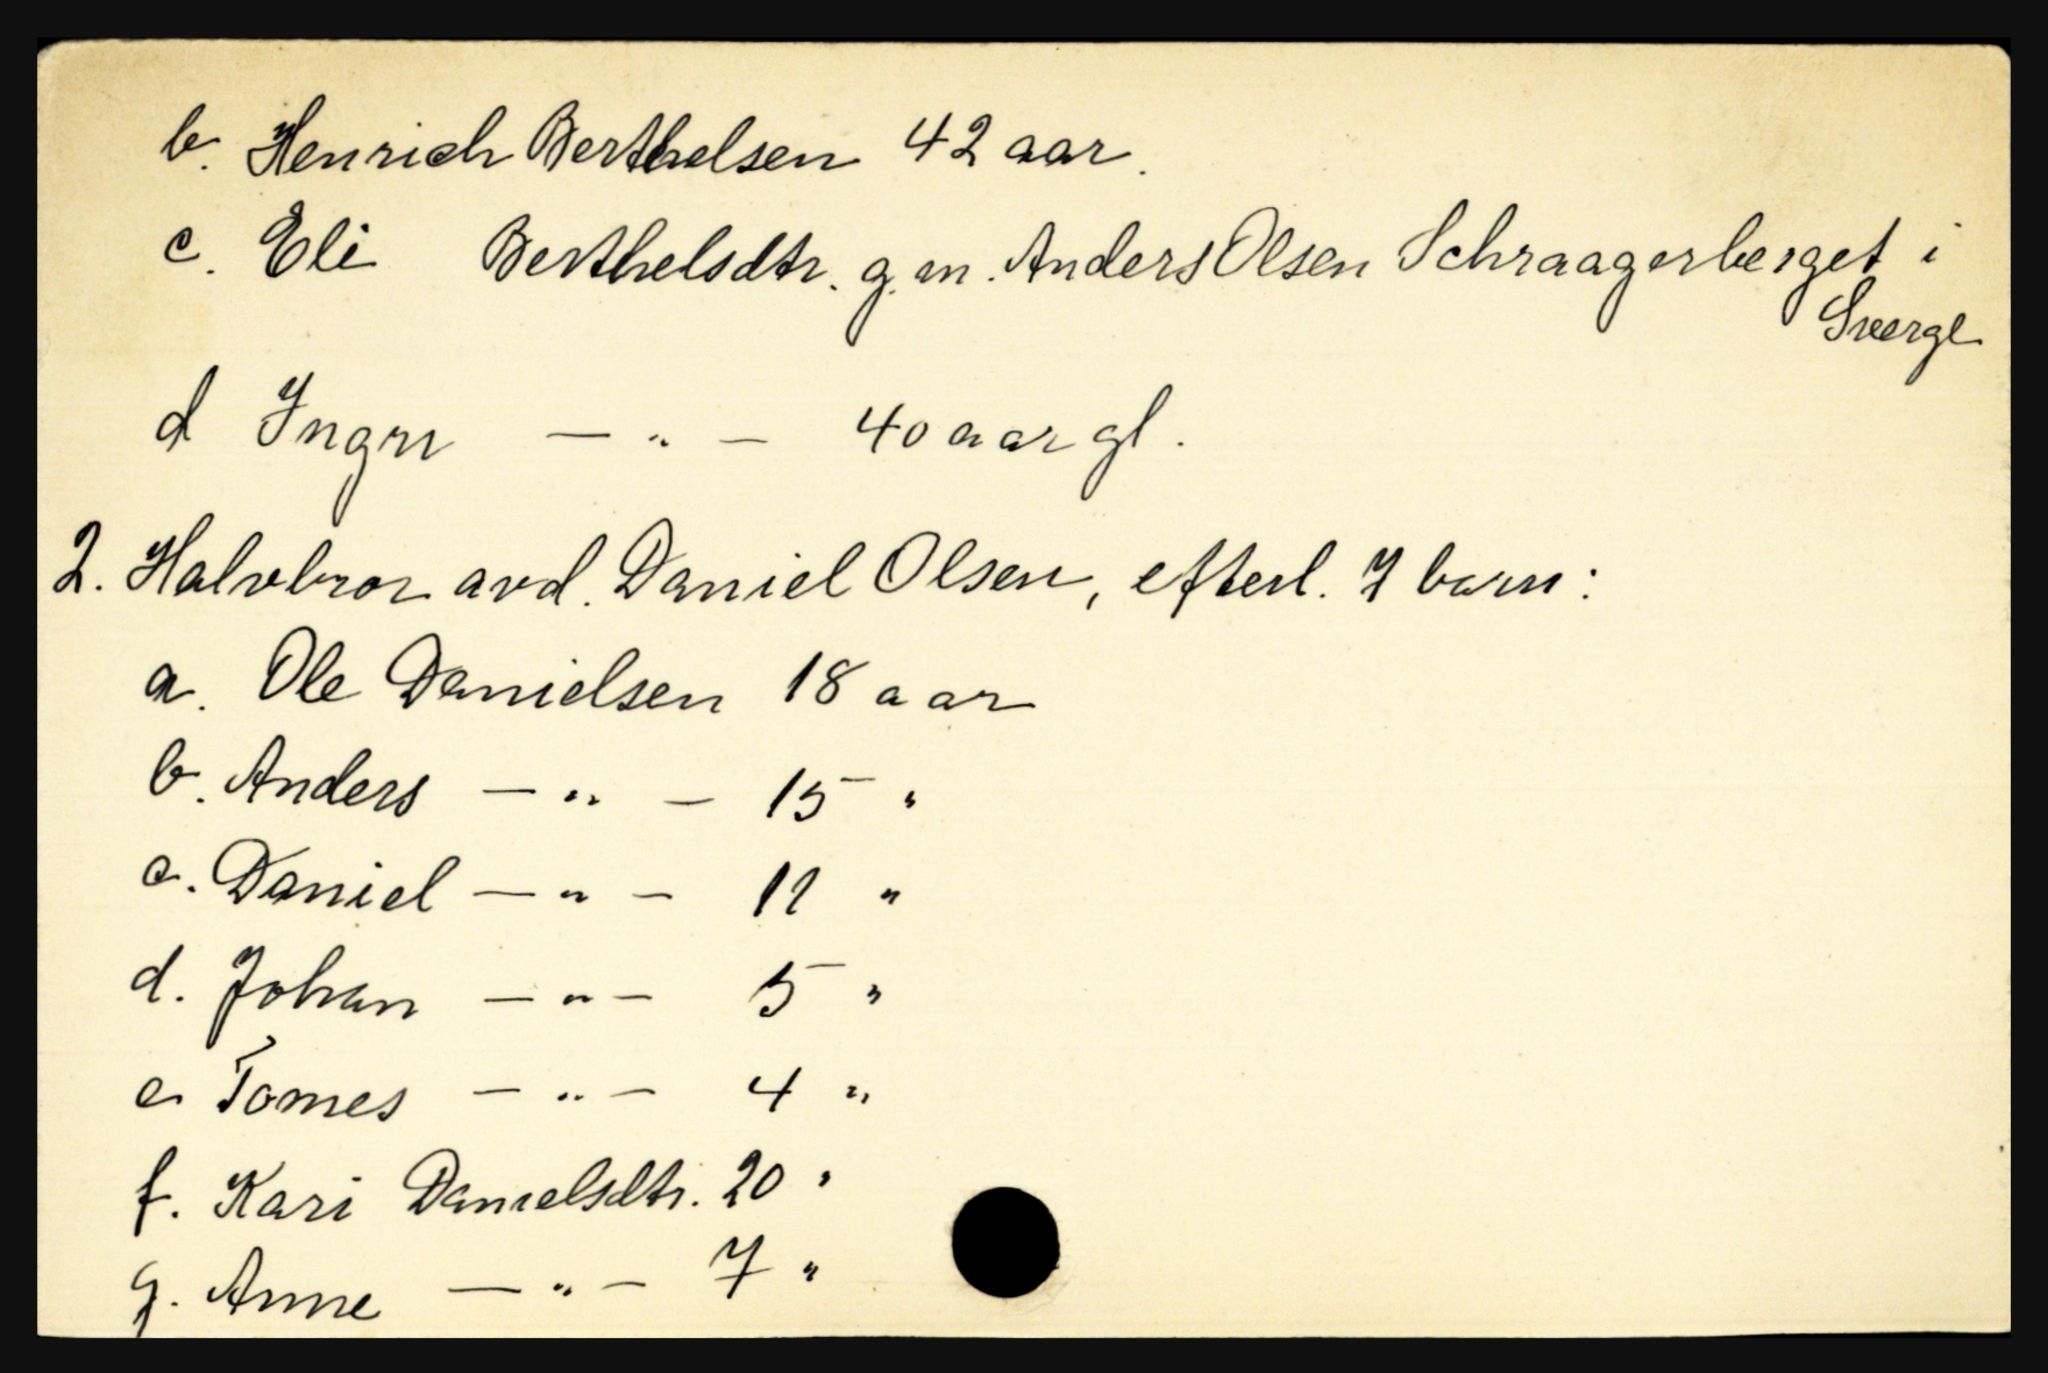 b. Henrich Berthelsen 42 aar.
c. Eli Berthelsdtr. g.m. Anders Olsen Schraagerberget i
Sverge
d Ingri — " — 40 aar gl.
2. Halvbror avd. Daniel Olsen, efterl. 7 barn:
a. Ole Danielsen 18 aar
b. Anders — " — 15 "
c. Daniel — " — 11 "
d. Johan — " — 5 "
e. Tomes — " — 4 "
f. Kari Danielsdtr. 20 "
g. Anne — " — 7 "